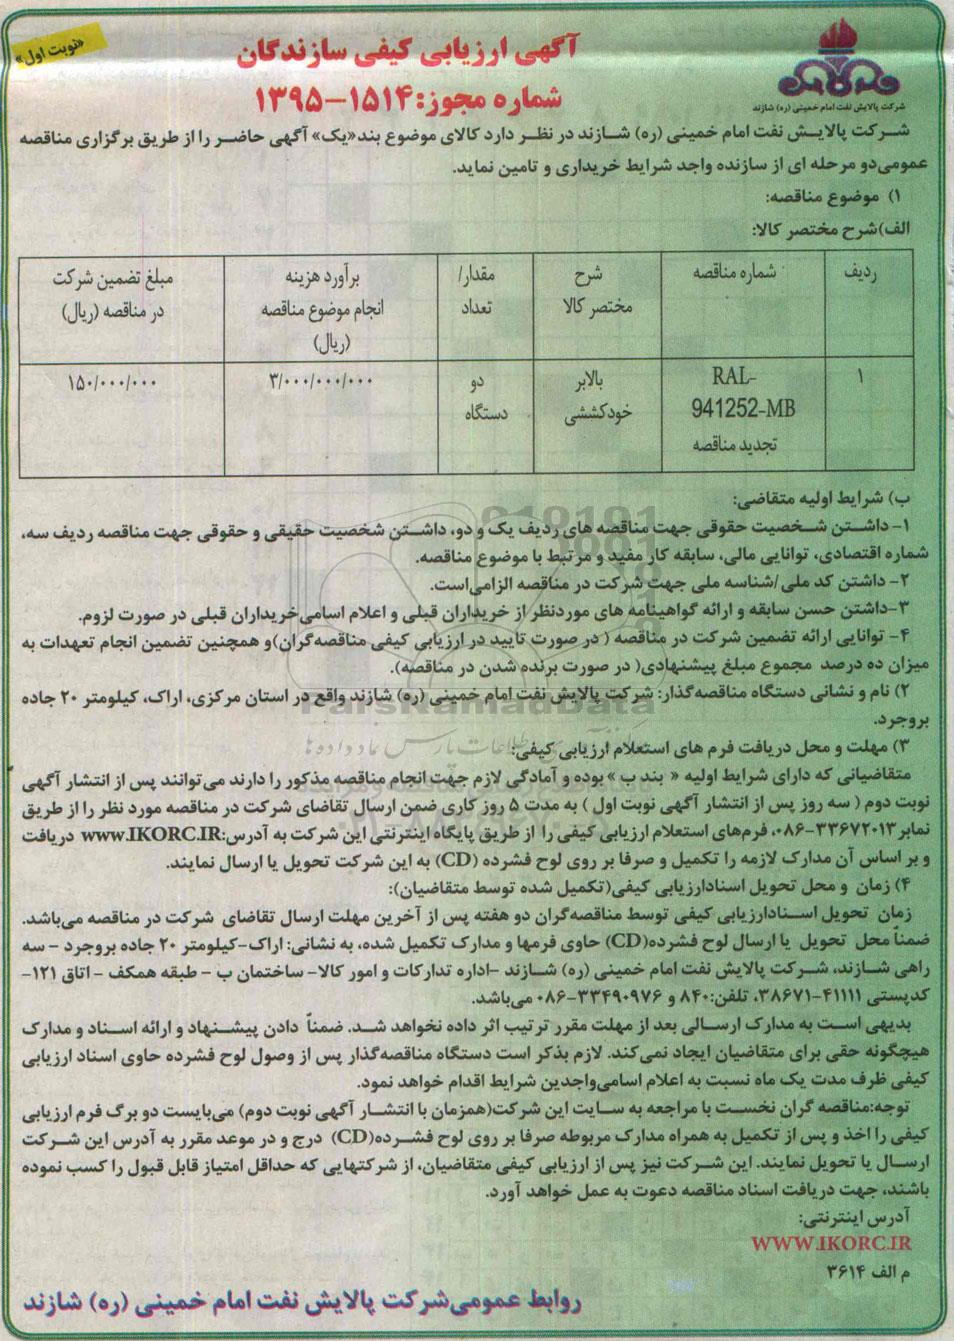 «نوبت اول»
آگهی ارزیابی کیفی سازندگان
شماره مجوز: ۱۵۱۴-۱۳۹۵
شرکت پالایش نفت امام خمینی (ره) شازند
شرکت پالایش نفت امام خمینی (ره) شازند در نظر دارد کالای موضوع بند«یک» آگهی حاضر را از طریق برگزاری مناقصه
عمومی‌دو مرحله ای از سازنده واجد شرایط خریداری و تامین نماید.
۱) موضوع مناقصه:
الف)شرح مختصر کالا:
ردیف | شماره مناقصه | شرح مختصر کالا | مقدار/ تعداد | برآورد هزینه انجام موضوع مناقصه (ریال) | مبلغ تضمین شرکت در مناقصه (ریال)
۱ | RAL-941252-MB تجدید مناقصه | بالابر خودکششی | دو دستگاه | ۳/۰۰۰/۰۰۰/۰۰۰ | ۱۵۰/۰۰۰/۰۰۰
ب) شرایط اولیه متقاضی:
۱- داشتن شخصیت حقوقی جهت مناقصه های ردیف یک و دو، داشتن شخصیت حقیقی و حقوقی جهت مناقصه ردیف سه،
شماره اقتصادی، توانایی مالی، سابقه کار مفید و مرتبط با موضوع مناقصه.
۲- داشتن کد ملی /شناسه ملی جهت شرکت در مناقصه الزامی‌است.
۳-داشتن حسن سابقه و ارائه گواهینامه های موردنظر از خریداران قبلی و اعلام اسامی‌خریداران قبلی در صورت لزوم.
۴- توانایی ارائه تضمین شرکت در مناقصه ( در صورت تایید در ارزیابی کیفی مناقصه‌گران)و همچنین تضمین انجام تعهدات به
میزان ده درصد مجموع مبلغ پیشنهادی( در صورت برنده شدن در مناقصه).
۲) نام و نشانی دستگاه مناقصه‌گذار: شرکت پالایش نفت امام خمینی (ره) شازند واقع در استان مرکزی، اراک، کیلومتر ۲۰ جاده
بروجرد.
ParsNamadData
۳) مهلت و محل دریافت فرم های استعلام ارزیابی کیفی:
متقاضیانی که دارای شرایط اولیه « بند ب »بوده و آمادگی لازم جهت انجام مناقصه مذکور را دارند می‌توانند پس از انتشار آگهی
نوبت دوم ( سه روز پس از انتشار آگهی نوبت اول ) به مدت ۵ روز کاری ضمن ارسال تقاضای شرکت در مناقصه مورد نظر را از طریق
نمابر۳۳۶۷۲۰۱۳-۰۸۶، فرم‌های استعلام ارزیابی کیفی را از طریق پایگاه اینترنتی این شرکت به آدرس:www.IKORC.IR دریافت
و بر اساس آن مدارک لازمه را تکمیل و صرفا بر روی لوح فشرده (CD) به این شرکت تحویل یا ارسال نمایند.
۴) زمان و محل تحویل اسنادارزیابی کیفی(تکمیل شده توسط متقاضیان):
زمان تحویل اسنادارزیابی کیفی توسط مناقصه‌گران دو هفته پس از آخرین مهلت ارسال تقاضای شرکت در مناقصه می‌باشد.
ضمناً محل تحویل یا ارسال لوح فشرده(CD) حاوی فرمها و مدارک تکمیل شده، به نشانی: اراک-کیلومتر ۲۰ جاده بروجرد - سه
راهی شازند، شرکت پالایش نفت امام خمینی (ره) شازند -اداره تدارکات و امور کالا- ساختمان ب - طبقه همکف - اتاق ۱۲۱-
کدپستی ۴۱۱۱۱-۳۸۶۷۱، تلفن:۸۴۰ و ۳۳۴۹۰۹۷۶-۰۸۶ می‌باشد.
بدیهی است به مدارک ارسالی بعد از مهلت مقرر ترتیب اثر داده نخواهد شد. ضمناً دادن پیشنهاد و ارائه اسناد و مدارک
هیچگونه حقی برای متقاضیان ایجاد نمی‌کند. لازم بذکر است دستگاه مناقصه‌گذار پس از وصول لوح فشرده حاوی اسناد ارزیابی
کیفی ظرف مدت یک ماه نسبت به اعلام اسامی‌واجدین شرایط اقدام خواهد نمود.
توجه:مناقصه گران نخست با مراجعه به سایت این شرکت(همزمان با انتشار آگهی نوبت دوم) می‌بایست دو برگ فرم ارزیابی
کیفی را اخذ و پس از تکمیل به همراه مدارک مربوطه صرفا بر روی لوح فشرده(CD) درج و در موعد مقرر به آدرس این شرکت
ارسال یا تحویل نمایند. این شرکت نیز پس از ارزیابی کیفی متقاضیان، از شرکتهایی که حداقل امتیاز قابل قبول را کسب نموده
باشند، جهت دریافت اسناد مناقصه دعوت به عمل خواهد آورد.
آدرس اینترنتی:
WWW.IKORC.IR
م الف ۳۶۱۴
روابط عمومی‌شرکت پالایش نفت امام خمینی (ره) شازند